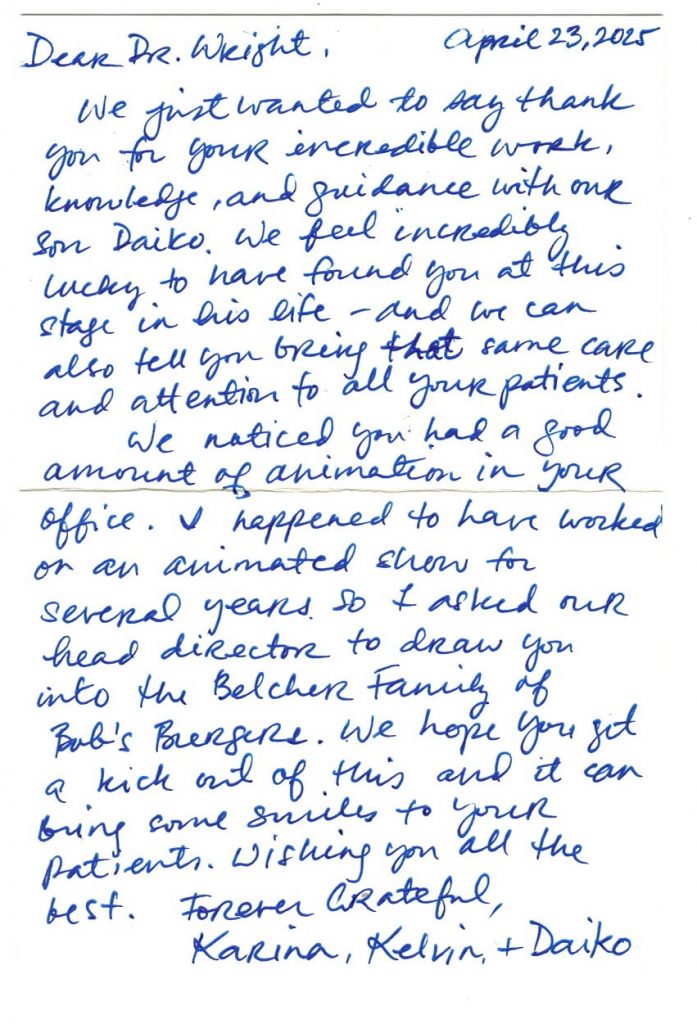 Dear Dr. Wright, April 23, 2025
We just wanted to say thank
you for your incredible work,
knowledge, and guidance with our
son Daiko. We feel incredibly
lucky to have found you at this
stage in his life – and we can
also tell you bring that same care
and attention to all your patients.
We noticed you had a good
amount of animation in your
office. I happened to have worked
on an animated show for
several years. So I asked our
head director to draw you
into the Belcher Family of
Bob's Burgers. We hope you get
a kick out of this and it can
bring some smiles to your
patients. Wishing you all the
best. Forever Grateful,
Karina, Kelvin, + Daiko